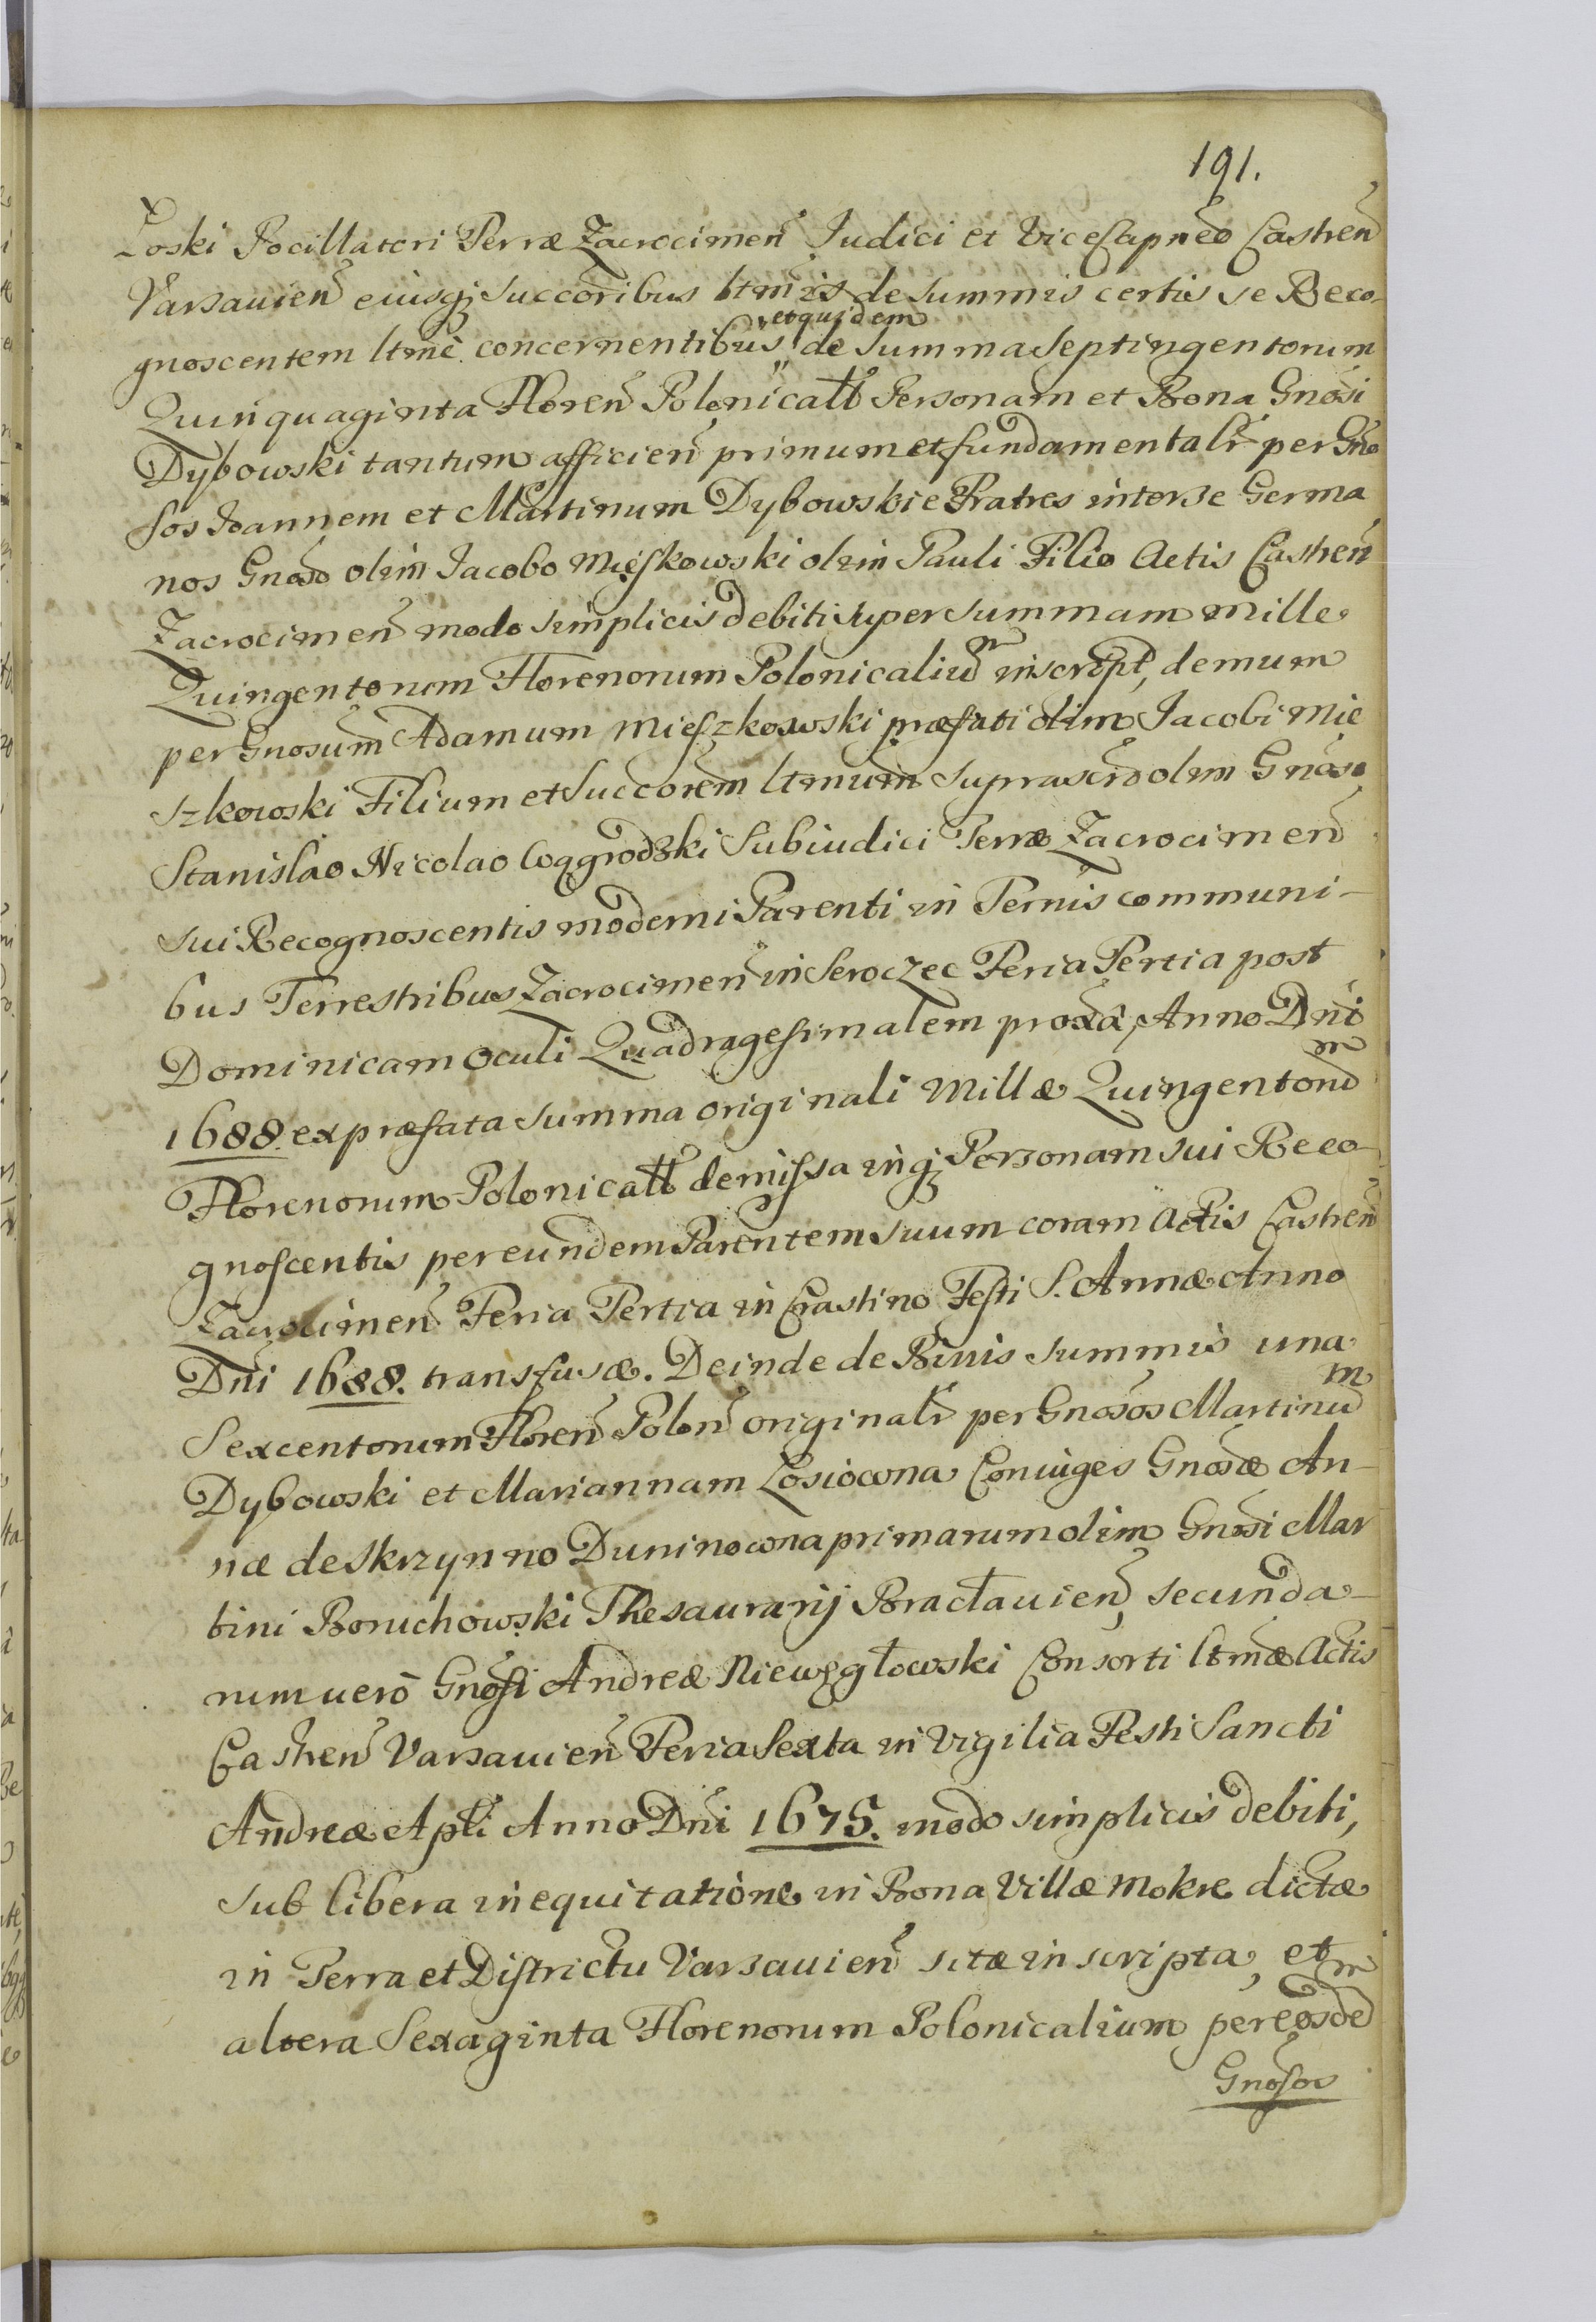 191.
Łoski Pocillatori Terræ Zacrocimen̄ Judici et ViceCapneo Castren̄
Varsavien̄ eiusqꝫ Succoribus ltmis de summis certis se Reco-
gnoscentem ltme concernentibus etquidem de Summa Septingentorum
Quinquaginta Floren̄ Polonicall Personam et Bona Gnosi
Dybowski tantum afficien̄ primum et fundamentalr per Gno
sos Joannem et Martinum Dybowskie Fratres inter se Germa
nos Gnoso olim Jacobo Mięskowski olim Pauli Filio Actis Castren̄
Zacrocimen̄ modo simplicis debiti super summam mille
Quingentorum Florenorum Polonicaliūm inscript, demum
per Gnosum Adamum Mieszkowski præfati olim Jacobi Mie
szkowski Filium et Succorem ltmum suprascro olim Gnoso
Stanislao Nicolao Coggrodzki Subiudici Terræ Zacrocimen̄
sui Recognoscentis moderni Parenti in Ternis communi-
bus Terrestribus Zacrocimen̄ in Seroczec Feria Tertia post
Dominicam Oculi Quadragesimalem proxa, Anno Dni
1688. ex præfata summa originali Millæ Quingentorūm
Florenorum Polonicall demissa inqꝫ Personam sui Reco-
gnoscentis per eundem Parentem suum coram Actis Castren̄
Zacrocimen̄ Feria Tertia in Crastino Festi S. Annæ Anno
Dni 1688. transfusæ. Deinde de Binis summis una
Sexcentorum Floren̄ Polon̄ originalr per Gnosos Martinūm
Dybowski et Mariannam Łosiowna Coniuges Gnosæ An-
næ de Skrzynno Duninowna primarum olim Gnosi Mar
tini Boruchowski Thesaurarij Bracłavien̄, secunda-
rum verò Gnosi Andreæ Niewęgłowski Consorti ltmæ Actis
Castren̄ Varsavien̄ Feria Sexta in Vigilia Festi Sancti
Andreæ Apli Anno Dni 1675. modo simplicis debiti,
sub libera inequitatione in Bona Villæ Mokre dictæ
in Terra et Districtu Varsavien̄ sitæ inscripta, et
altera Sexaginta Florenorum Polonicalium per eosdēm
Gnosos